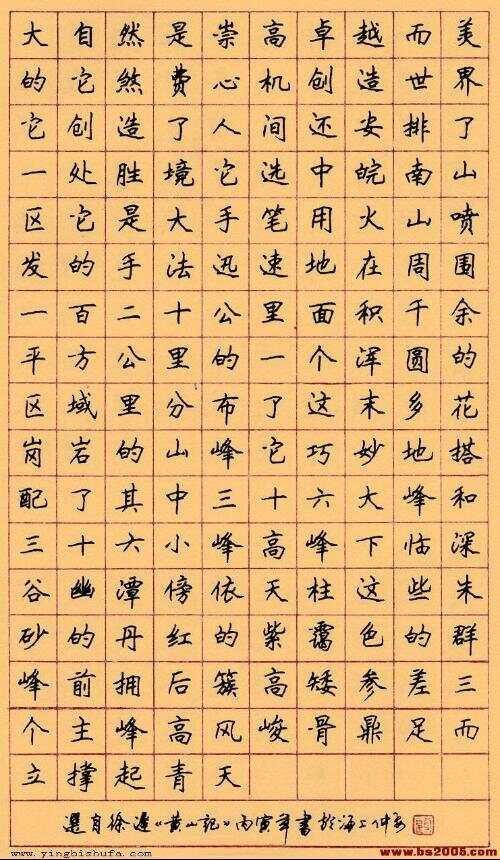 大自然是崇高卓越而美
的它煞费心机创造世界
它创造了人间还安排了
一处胜境它选中皖南山
区它是大手笔用火山喷
发的手法迅速地在周围
一百二十公里面积千余
平方公里的一个浑圆的
区域里分布了这末多花
岗岩的山峰它巧妙地搭
配了其中三十六大峰和
三十六小峰高峰下临深
谷幽潭傍依天柱这些朱
砂的丹红的紫霭色的群
峰前拥后簇高矮参差三
个主峰高风峻骨鼎足而
立撑起青天
選自徐遲《黄山記》丙寅年書於海上
www.yingbishufa.com
www.bs2005.com